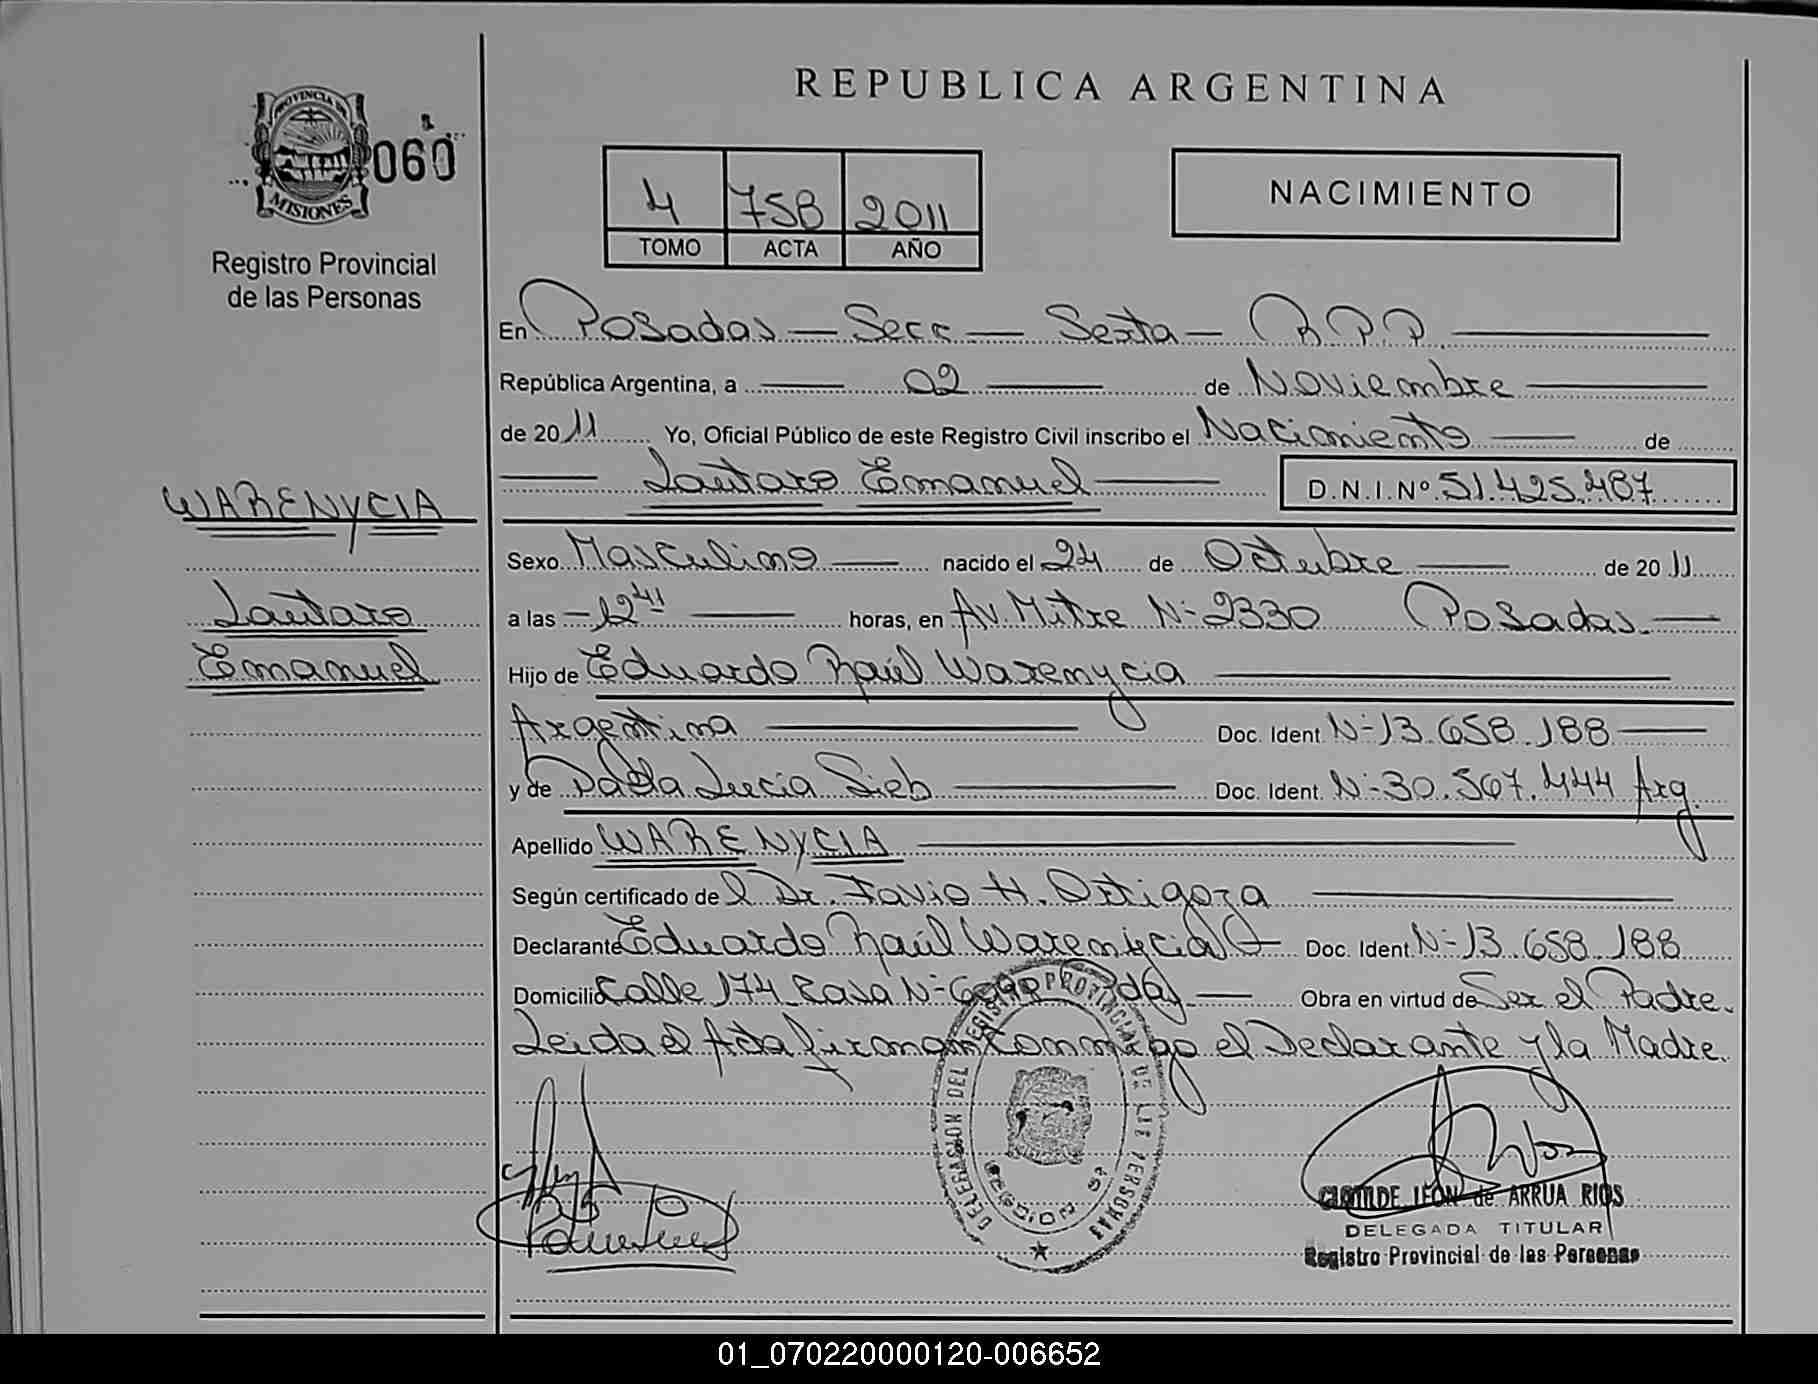 REPUBLICA ARGENTINA
PROVINCIA DE
MISIONES
060
Registro Provincial
de las Personas
4 758 2011
TOMO ACTA AÑO
NACIMIENTO
En Posadas — Secc — Sexta — R.P.P.
República Argentina, a 02 de Noviembre
de 2011 Yo, Oficial Público de este Registro Civil inscribo el Nacimiento de
Lautaro Emanuel D.N.I. Nº 51.425.487
WARENYCIA
Lautaro
Emanuel
Sexo Masculino nacido el 24 de Octubre de 2011
a las 12 41 horas, en Av. Mitre Nº 2330 Posadas.
Hijo de Eduardo Raúl Warenycia
Argentina Doc. Ident. Nº 13.658.188
y de Paola Lucía Sieb Doc. Ident. Nº 30.567.444 Arg.
Apellido WARENYCIA
Según certificado del Dr. Favio H. Ortigoza
Declarante Eduardo Raúl Warenycia Doc. Ident. Nº 13.658.188
Domicilio Calle 174 Casa Nº Pdas Obra en virtud de Ser el Padre.
Leida el Acta firman conmigo el Declarante y la Madre.
DELEGACION DEL REGISTRO PROVINCIAL DE LAS PERSONAS
CLOTILDE LEON de ARRUA RIOS
DELEGADA TITULAR
Registro Provincial de las Personas
01_070220000120-006652